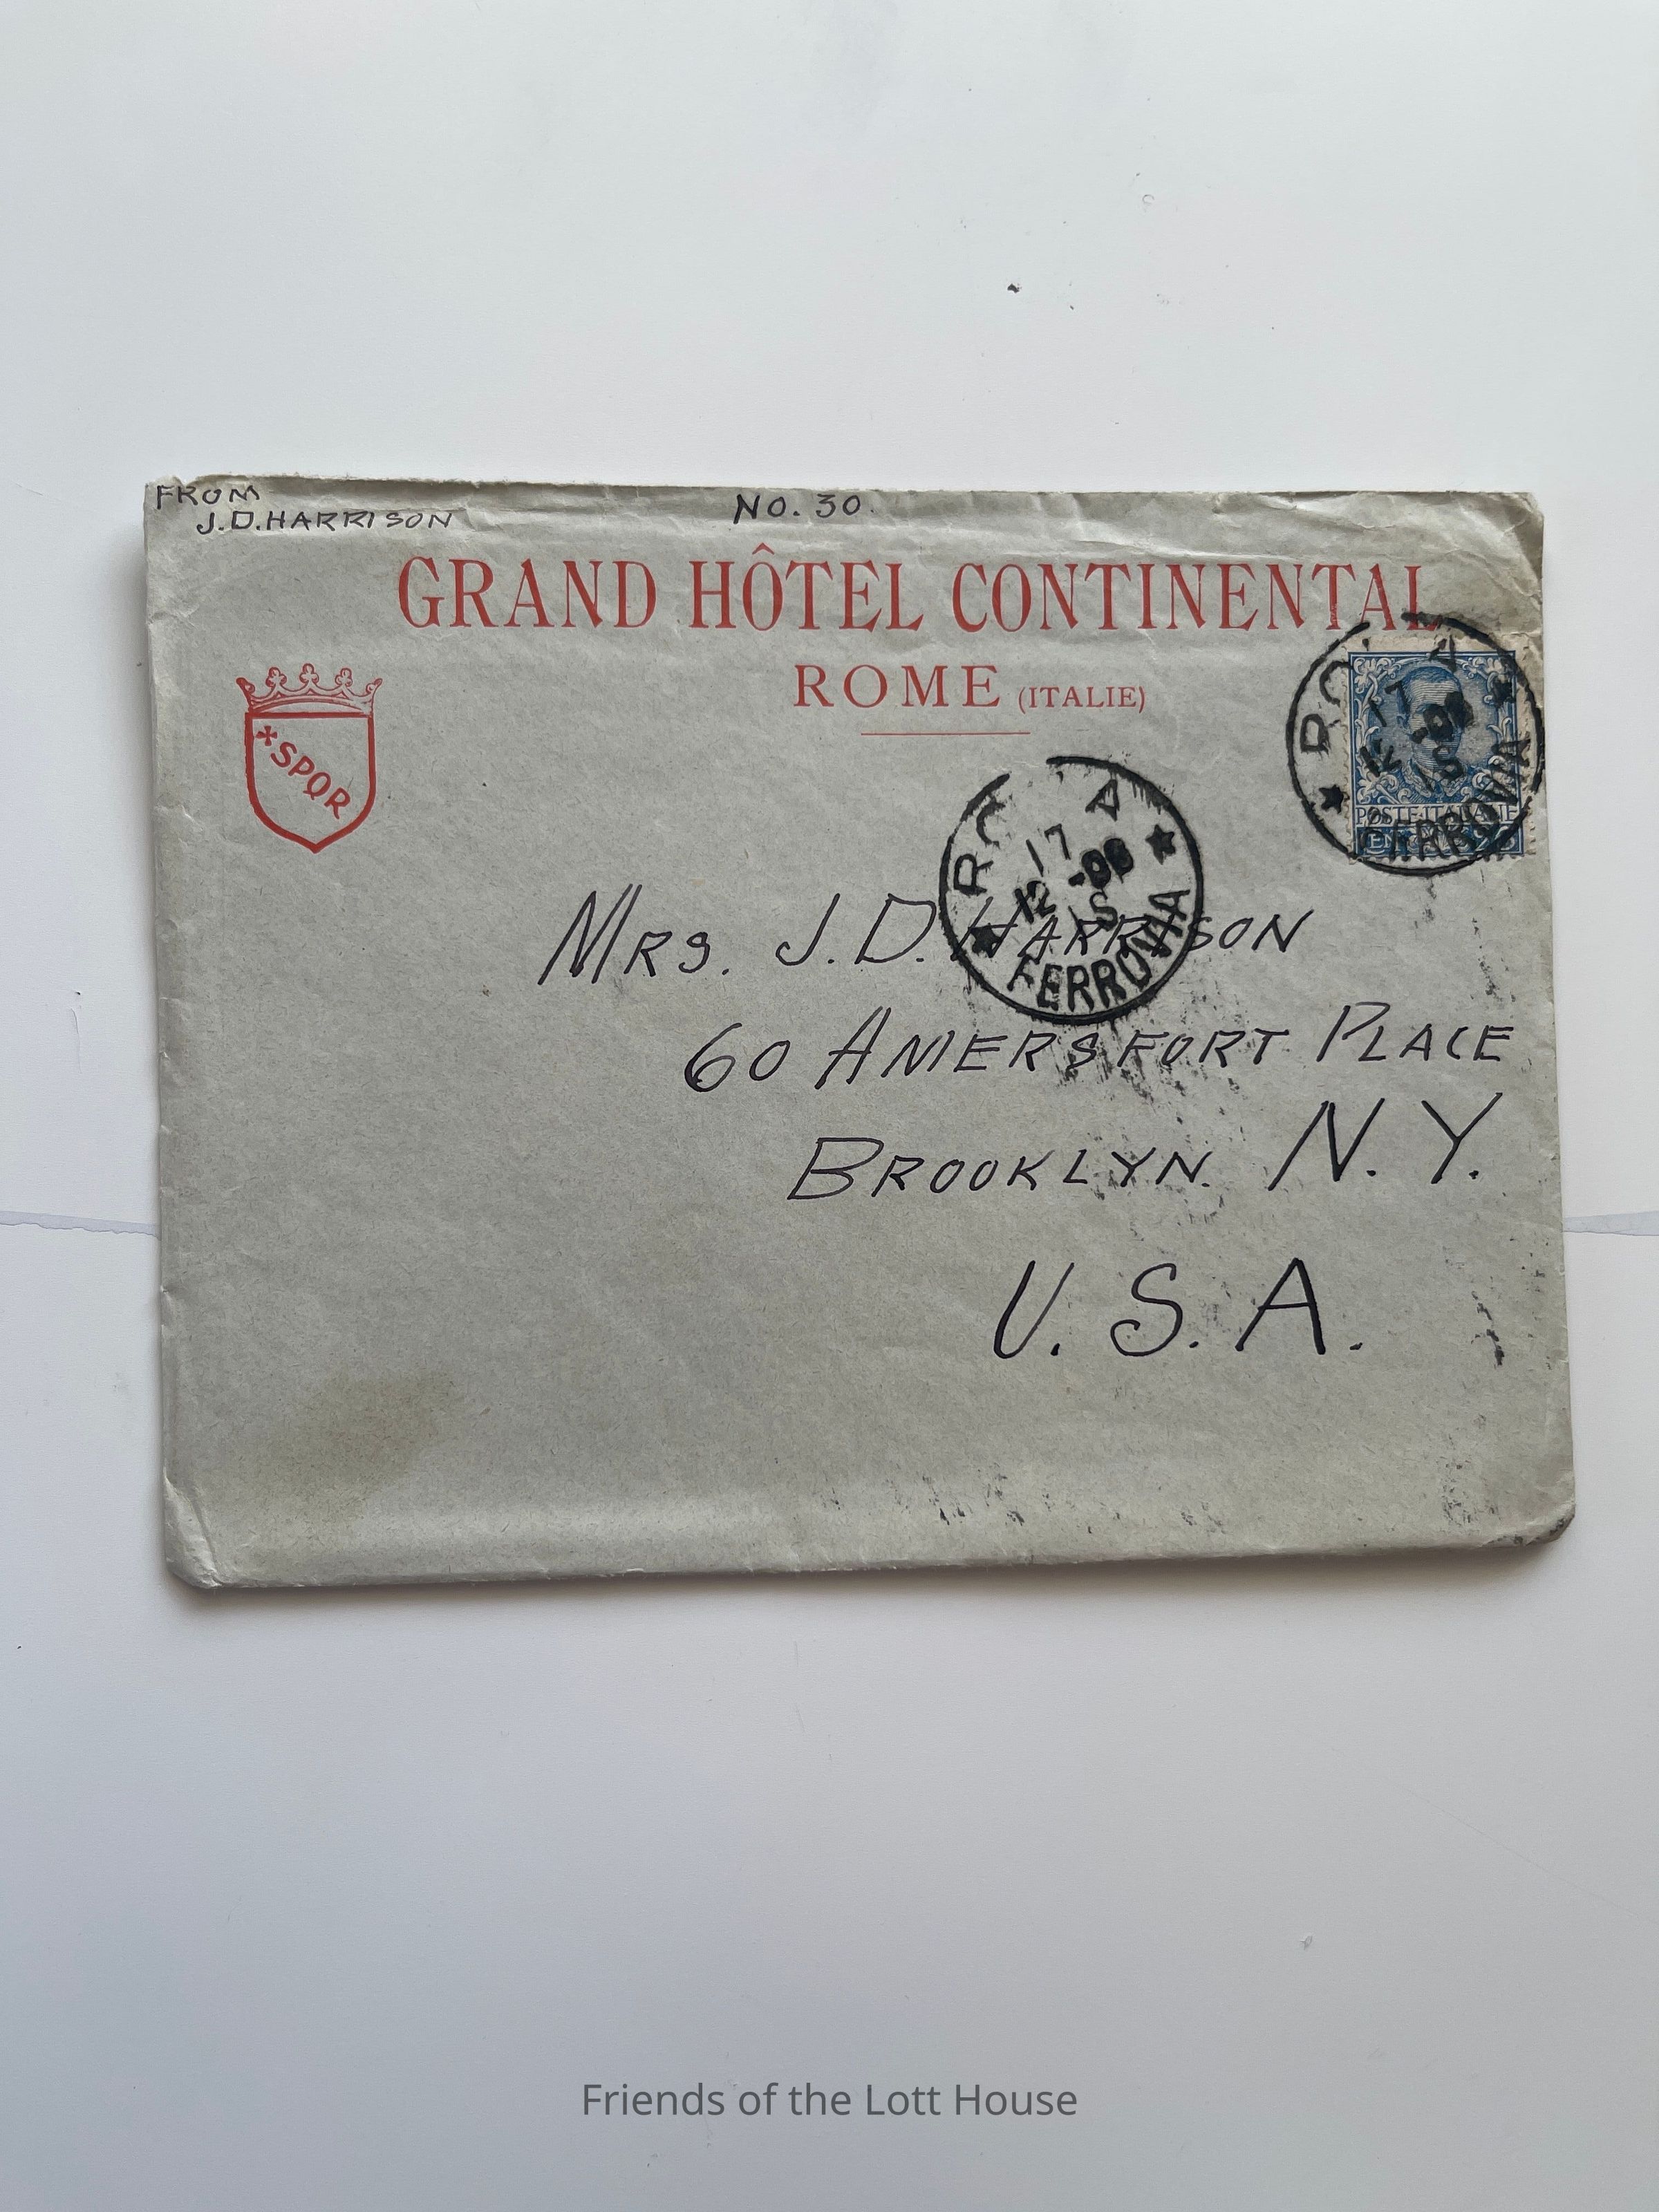 FROM
J.D. HARRISON
NO. 30.
GRAND HÔTEL CONTINENTAL
ROME (ITALIE)
SPQR
17
12 -08
15
FERROVIA
POSTE ITALIANE
17
12 -08
15
FERROVIA
MRS. J. D. HARRISON
60 AMERSFORT PLACE
BROOKLYN. N. Y.
U. S. A.
Friends of the Lott House